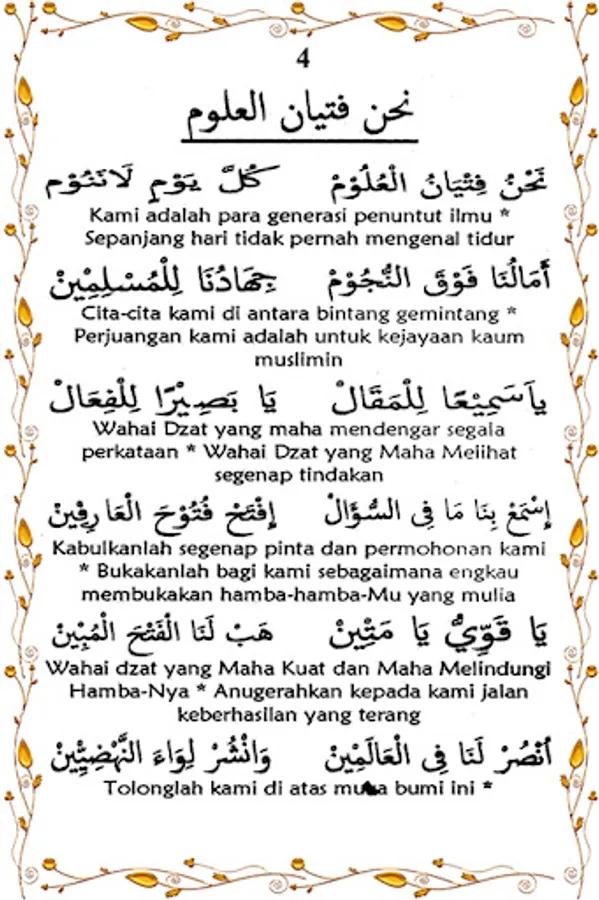 4
نحن فتيان العلوم
نَحْنُ فِتْيَانُ الْعُلُوْمْ كُلَّ يَوْمٍ لَانَنُوْم
Kami adalah para generasi penuntut ilmu *
Sepanjang hari tidak pernah mengenal tidur
أَمَالُنَا فَوْقَ النُّجُوْمْ جِهَادُنَا لِلْمُسْلِمِيْنْ
Cita-cita kami di antara bintang gemintang *
Perjuangan kami adalah untuk kejayaan kaum
muslimin
يَاسَمِيْعًا لِلْمَقَالْ يَا بَصِيْرًا لِلْفِعَالْ
Wahai Dzat yang maha mendengar segala
perkataan * Wahai Dzat yang Maha Meiihat
segenap tindakan
إِسْمَعْ بِنَا مَا فِى السُّؤَالْ إِفْتَحْ فُتُوْحَ الْعَارِفِيْنْ
Kabulkanlah segenap pinta dan permohonan kami
* Bukakanlah bagi kami sebagaimana engkau
membukakan hamba-hamba-Mu yang mulia
يَا قَوِيُّ يَا مَتِيْنْ هَبْ لَنَا الْفَتْحَ الْمُبِيْنْ
Wahai dzat yang Maha Kuat dan Maha Melindungi
Hamba-Nya * Anugerahkan kepada kami jalan
keberhasilan yang terang
اُنْصُرْ لَنَا فِى الْعَالَمِيْنْ وَانْشُرْ لِوَاءَ النَّهْضِيِّيْنْ
Tolonglah kami di atas muka bumi ini *